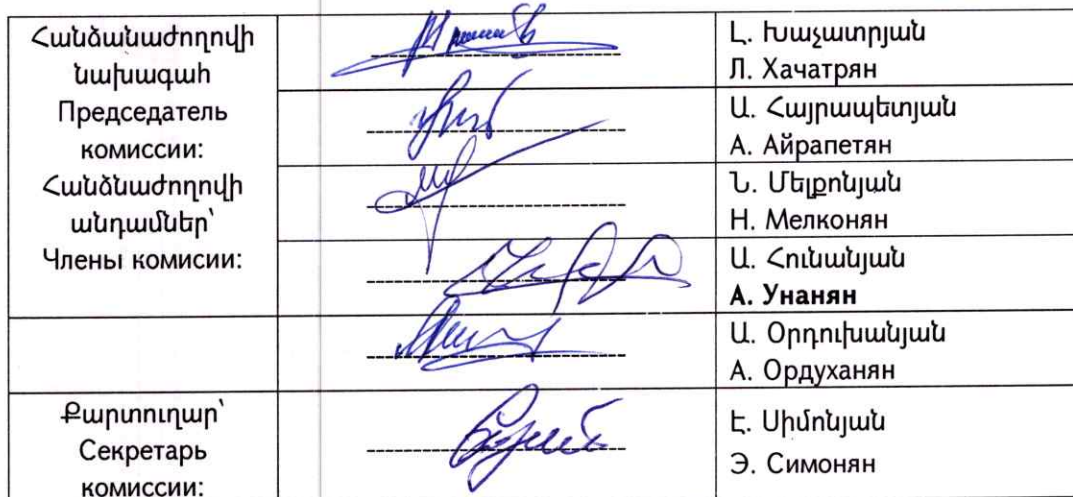 Հանձնաժողովի
նախագահ
Председатель
комиссии:
Հանձնաժողովի
անդամներ՝
Члены комисии:
Լ. Խաչատրյան
Л. Хачатрян
Ա. Հայրապետյան
А. Айрапетян
Ն. Մելքոնյան
Н. Мелконян
Ա. Հունանյան
А. Унанян
Ա. Օրդուխանյան
А. Ордуханян
Քարտուղար՝
Секретарь
комиссии:
Է. Սիմոնյան
Э. Симонян